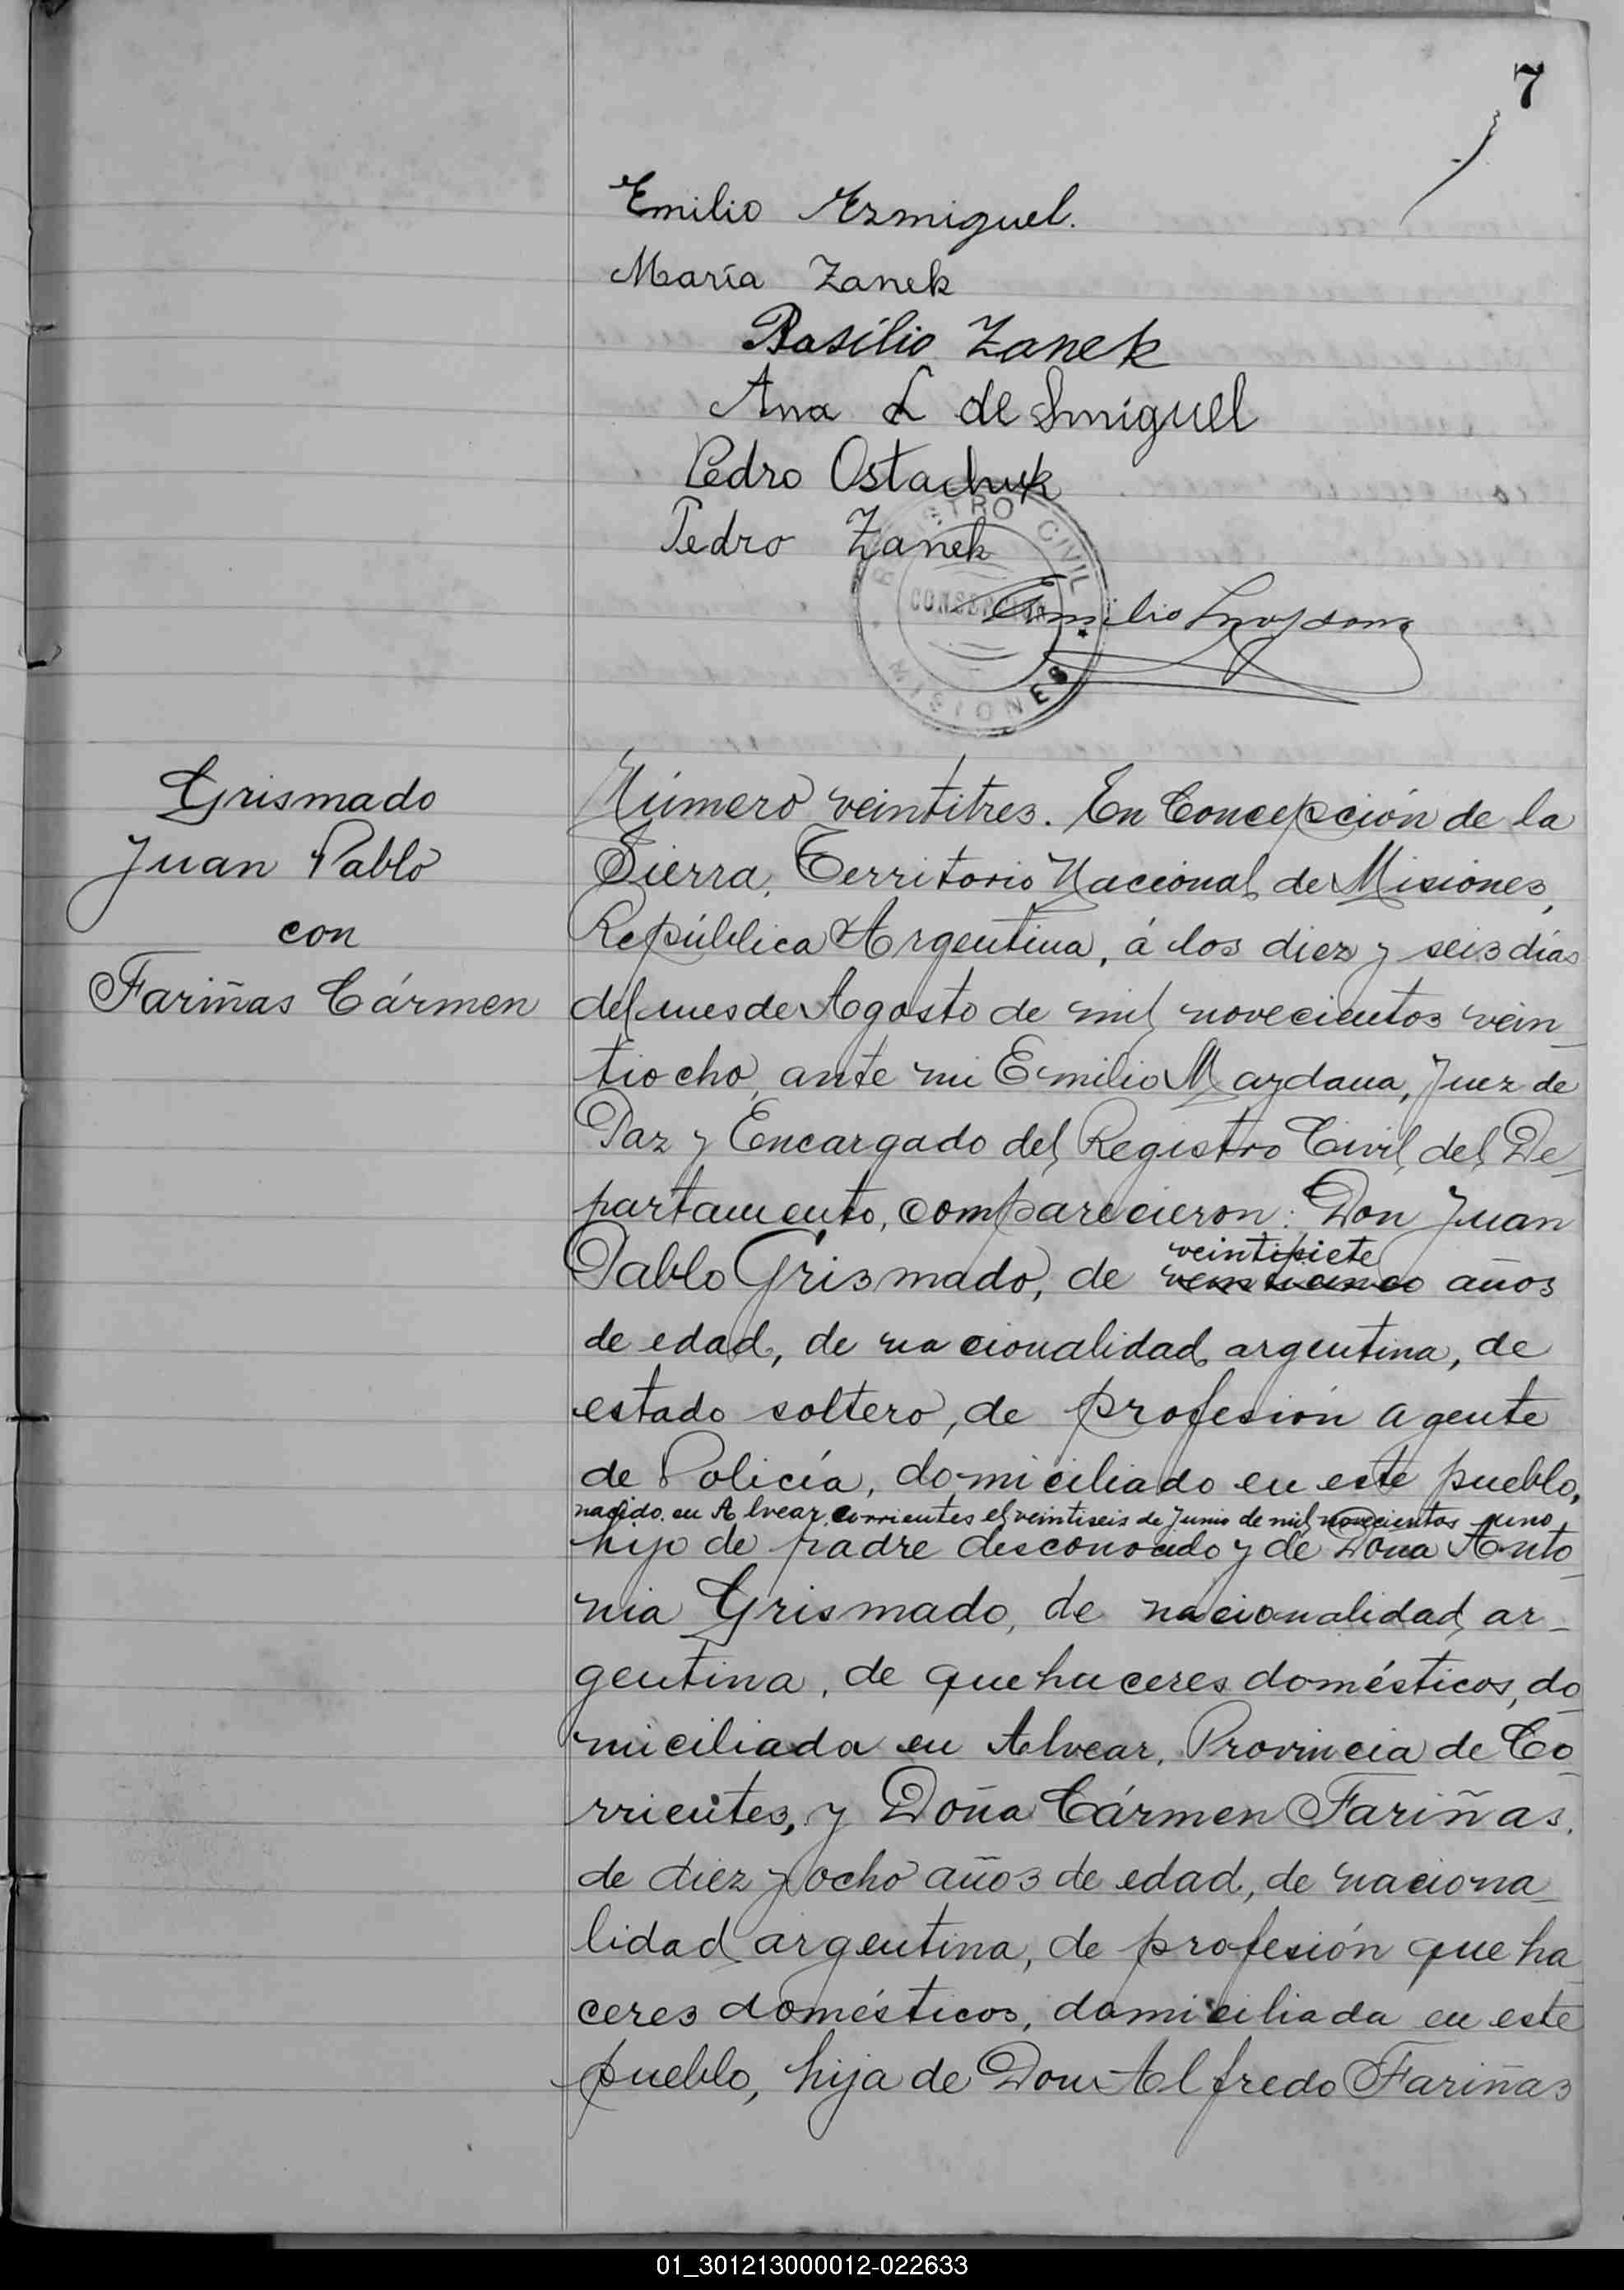 7
Emilio Ezmiguel.
María Zanek
Basilio Zanek
Ana L de Smiguel
Pedro Ostachuk
Pedro Zanek
REGISTRO CIVIL
MISIONES
Emilio
Grismado
Juan Pablo
con
Fariñas Cármen
Número veintitres. En Concepción de la
Sierra, Territorio Nacional de Misiones,
República Argentina, á los diez y seis días
del mes de Agosto de mil novecientos vein
tiocho, ante mi Emilio Maydana, Juez de
Paz y Encargado del Registro Civil del De
partamento, comparecieron: Don Juan
veintisiete
Pablo Grismado, de años
de edad, de nacionalidad argentina, de
estado soltero, de profesión agente
de Policía, domiciliado en este pueblo,
nacido en Alvear, Corrientes el veintiseis de Junio de mil novecientos uno,
hijo de padre desconocido y de Doña Anto
nia Grismado, de nacionalidad ar_
gentina, de quehaceres domésticos, do
miciliada en Alvear, Provincia de Co
rrientes, y Doña Cármen Fariñas,
de diez y ocho años de edad, de naciona
lidad argentina, de profesión queha
ceres domésticos, domiciliada en este
pueblo, hija de Don Alfredo Fariñas
01_301213000012-022633